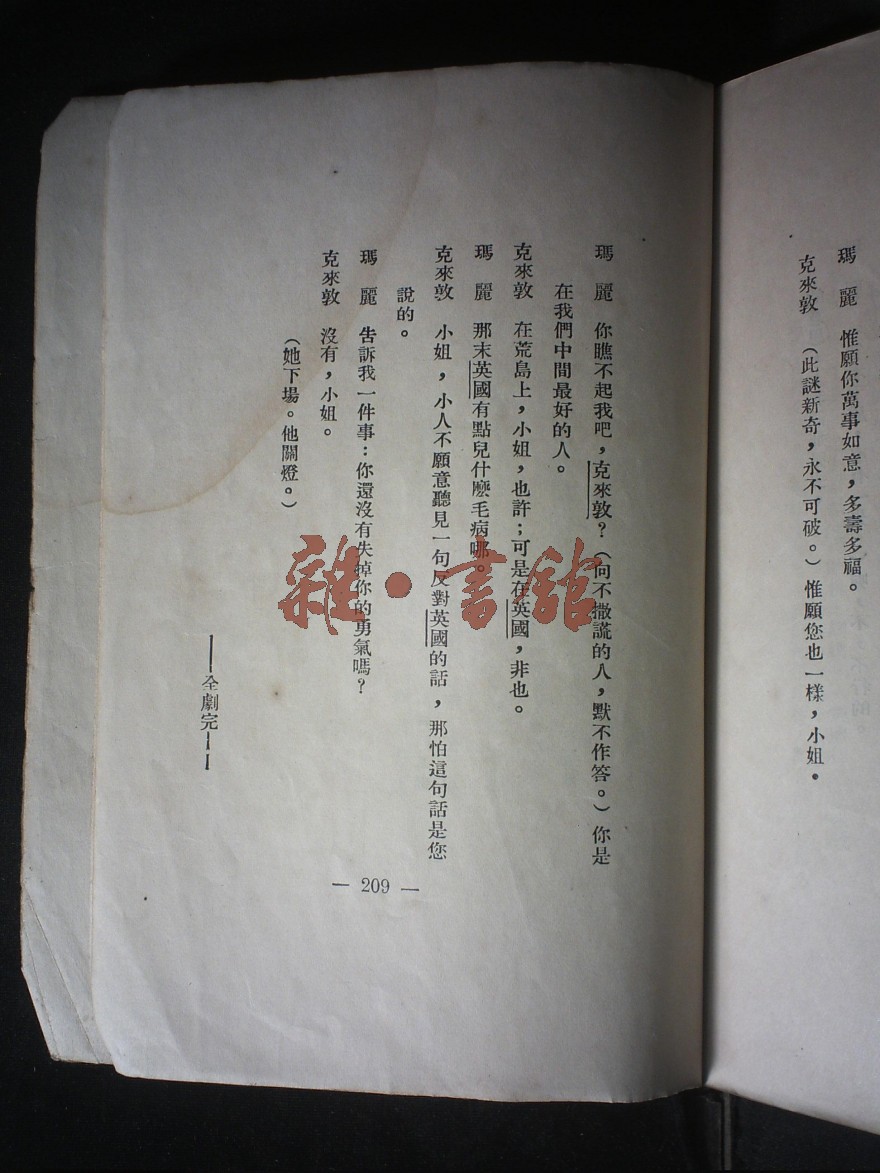 瑪　麗　惟願你萬事如意，多壽多福。
克來敦　（此謎新奇，永不可破。）惟願您也一樣，小姐。
瑪　麗　你瞧不起我吧，克來敦？（向不撒謊的人，默不作答。）你是
在我們中間最好的人。
克來敦　在荒島上，小姐，也許；可是在英國，非也。
瑪　麗　那末英國有點兒什麽毛病哪。
克來敦　小姐，小人不願意聽見一句反對英國的話，那怕這句話是您
說的。
瑪　麗　告訴我一件事：你還沒有失掉你的勇氣嗎？
克來敦　沒有，小姐。
（她下場。他關燈。）
——全劇完——
— 209 —
雜·書館